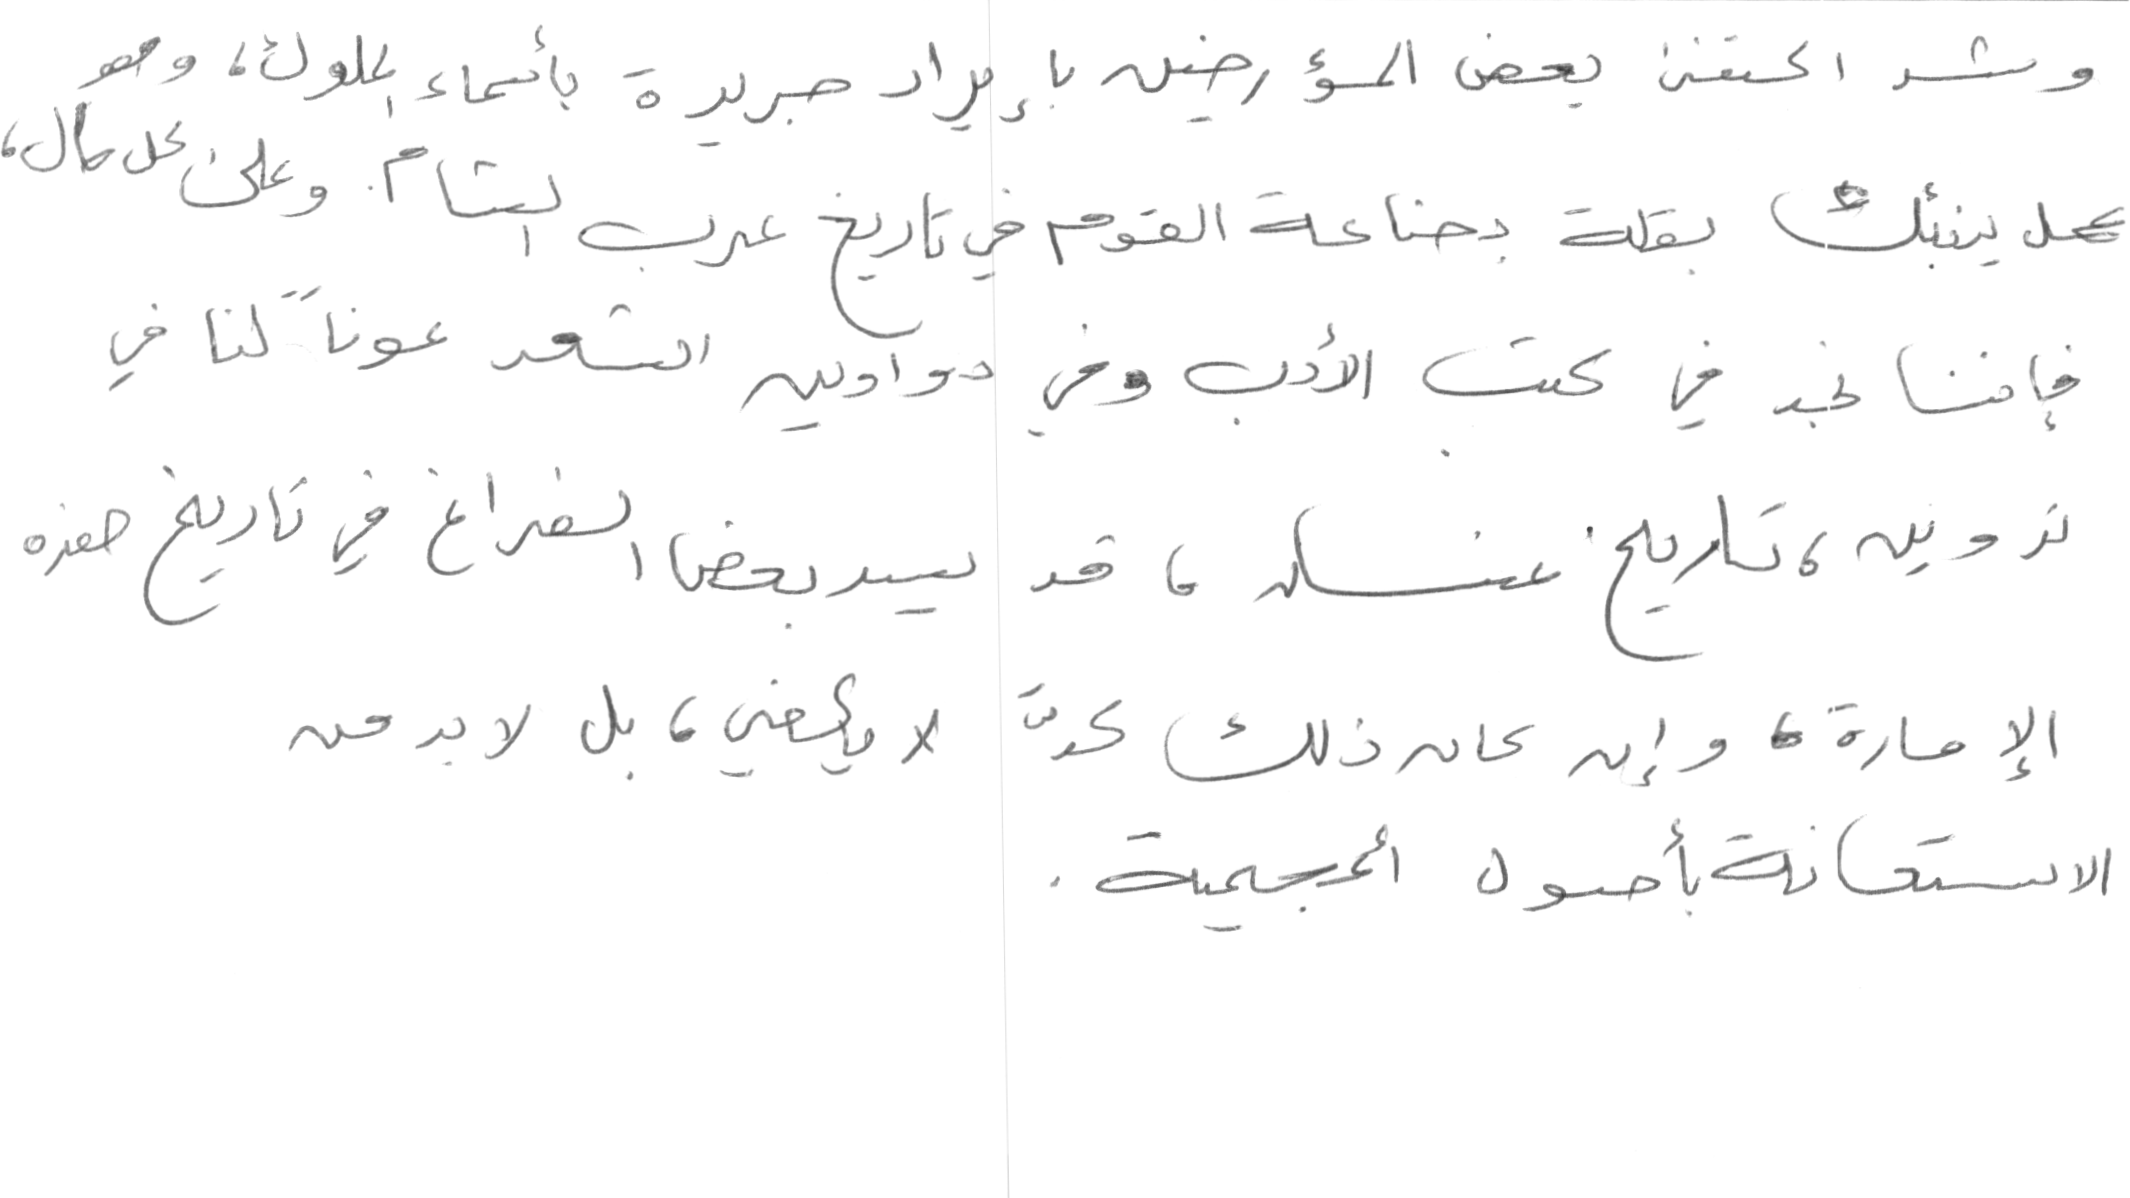 وقد اكتفى بعض المؤرخين بإيراد جريدة بأسماء الملوك، وهو
عمل ينبئك بقلة بضاعة القوم في تاريخ عرب الشام. وعلى كل حال،
فإننا نجد في كتب الأدب وفي دواوين الشعر عوناً لنا في
تدوين، تاريخ غسان، قد يسد بعض الفراغ في تاريخ هذه
الإمارة، وإن كان ذلك كله لا يكفي، بل لا بد من
الاستعانة بأصول أعجمية.